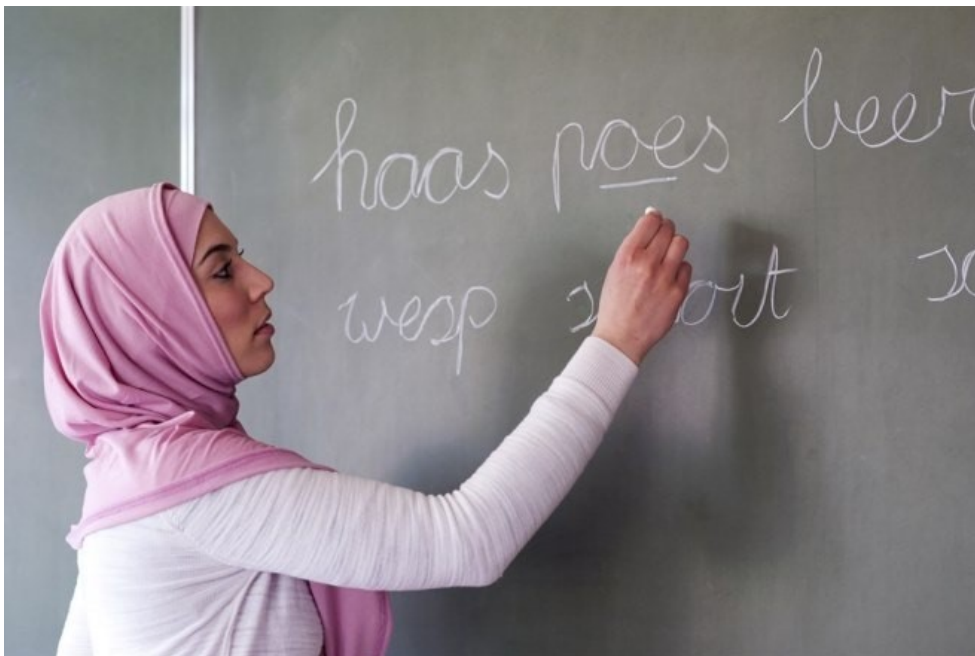 haas poes beer
wesp